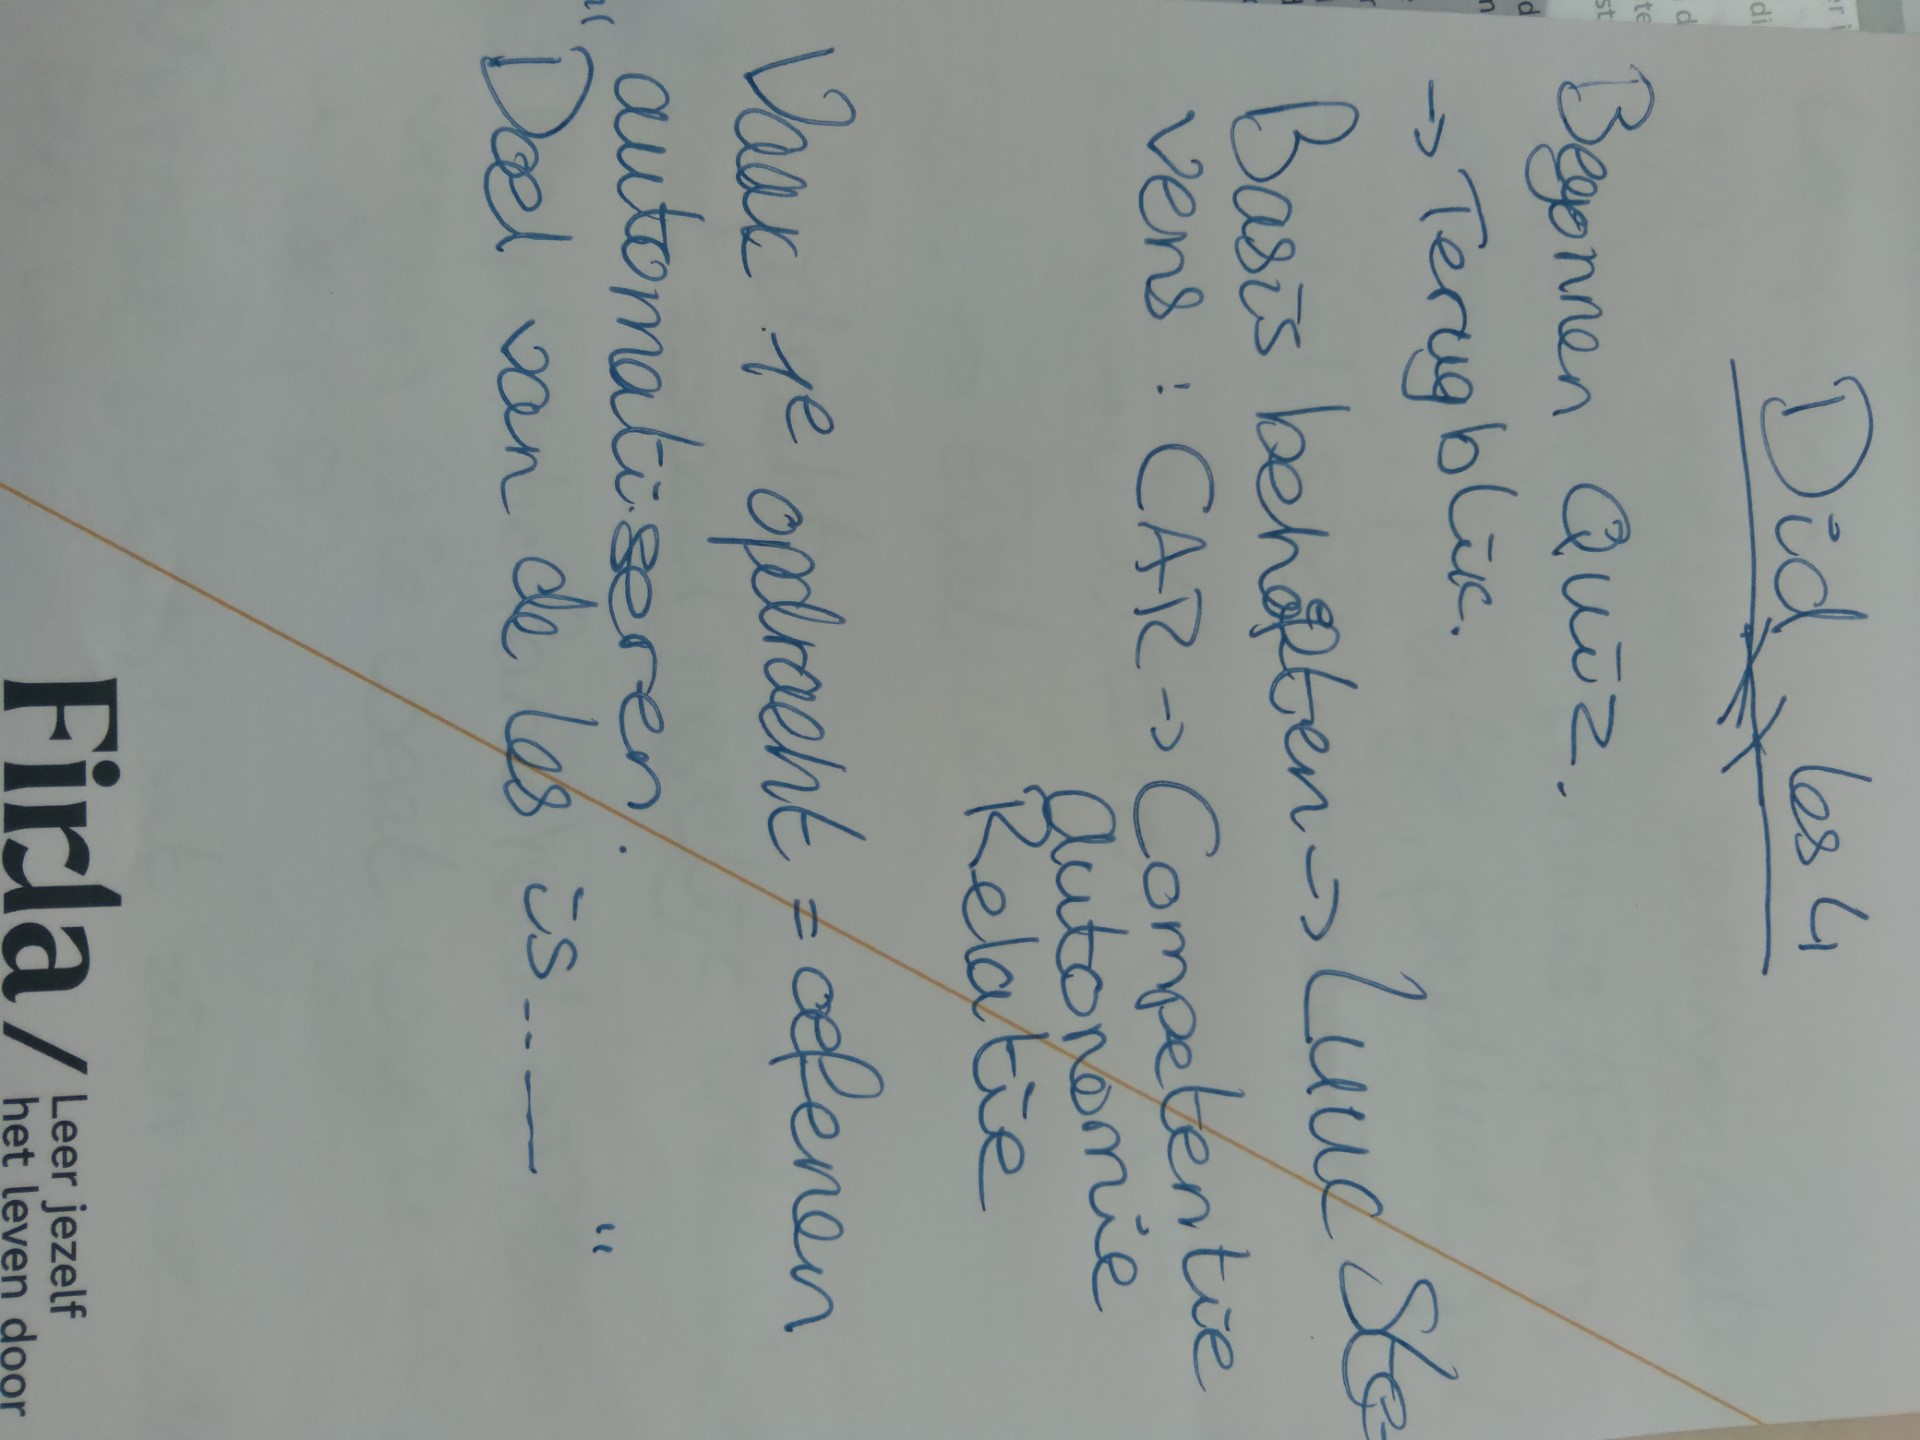 Did les 4
Begonnen Quiz.
→ Terugblik.
Basis behoeften → Luuk Ste-
vens : CAR → Competentie
Autonomie
Relatie
Vaak 1e opdracht = oefenen
automatiseren.
"Doel van de les is ..... "
Firda / Leer jezelf
het leven door